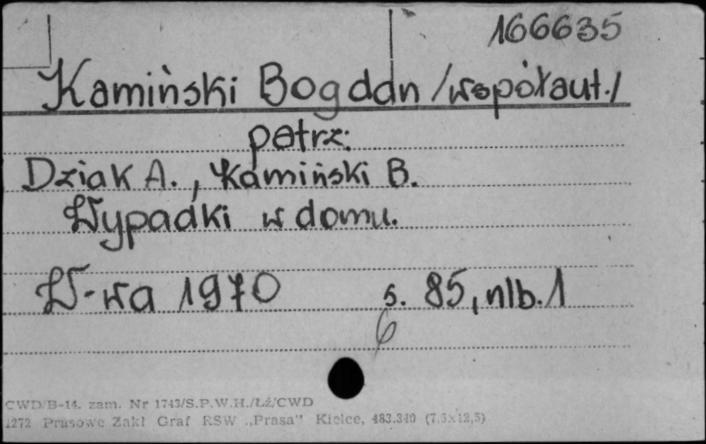 166635
Kamiński Bogdan /współaut./
patrz:
Dziak A., Kamiński B.
Wypadki w domu.
W-wa 1970 s. 85, nlb. 1
6
CWD/B-14. zam. Nr 1743/S.P.W.H./Łź/CWD
1272 Prasowe Zakł Graf RSW „Prasa" Kielce, 483.340 (7,5x12,5)